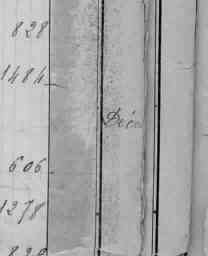 828
1484
Déc
606
1278
820